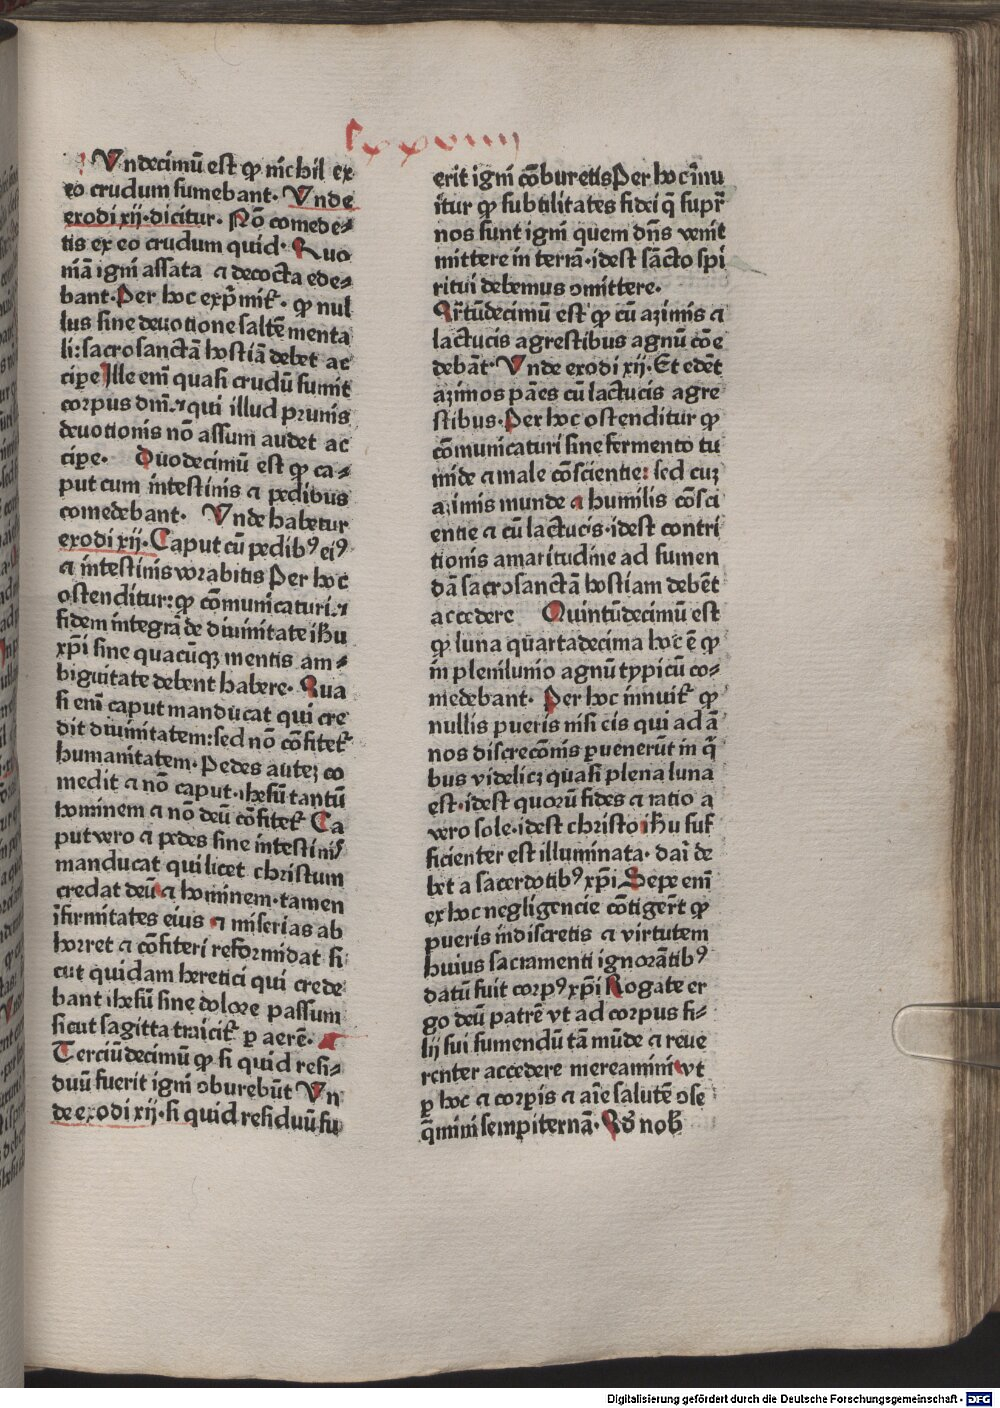 lxxviiij
Undecimū est ꝙ nichil ex
eo crudum sumebant. Unde
exodi xij. dicitur. Nō comede⸗
tis ex eo crudum quid. Quo
niā igni assata ⁊ decocta ede⸗
bant. Per hoc exp̄mit᷑. ꝙ nul
lus sine deuotione saltē menta
li: sacrosanctā hostiā debet ac
cipe Ille enī quasi crudū sumit
corpus dnī. ⁊ qui illud prunis
deuotionis nō assum audet ac
cipe. Duodecimū est ꝙ ca⸗
put cum intestinis ⁊ pedibus
comedebant. Unde habetur
exodi xij. Caput cū pedibꝰ eiꝰ
⁊ intestinis vorabitis Per hoc
ostenditur: ꝙ cōmunicaturi. ⁊
fidem integrā de diuinitate ihu
xp̄i sine quacūqꝫ mentis am⸗
biguitate debent habere. Qua
si enī caput manducat qui cre
dit diuinitatem: sed nō cōfitet᷑
humanitatem. Pedes auteꝫ co
medit ⁊ nō caput. ihesū tantū
hominem ⁊ nō deū cōfitet᷑ Ca
put vero ⁊ pedes sine intestinis
manducat qui licet christum
credat deū ⁊ hominem. tamen
īfirmitates eius ⁊ miserias ab
horret ⁊ cōfiteri reformidat si
cut quidam heretici qui crede
bant ihesū sine dolore passum
sicut sagitta traicit᷑ ꝑ aerē.
Terciūdecimū ꝙ si quid resi⸗
duū fuerit igni oburebūt Un
de exodi xij. si quid residuū fu
erit igni cōburetis Per hoc īnu
itur ꝙ subtilitates fidei q̄ supr̄
nos sunt igni quem dn̄s venit
mittere in terrā. idest sācto spi
ritui debemus omittere.
Qr̄tūdecimū est ꝙ cū azimis ⁊
lactucis agrestibus agnū cōe
debāt. Unde exodi xij. Et edēt
azimos pāes cū lactucis agre
stibus. Per hoc ostenditur ꝙ
cōmunicaturi sine fermento tu
mide ⁊ male cōscientie: sed cuꝫ
azimis munde ⁊ humilis cōsci
entie ⁊ cū lactucis. idest contri
tionis amaritudine ad sumen
dā sacrosanctā hostiam debēt
accedere Quintūdecimū est
ꝙ luna quartadecima hoc ē ꝙ
in plenilunio agnū typicū co⸗
medebant. Per hoc innuit᷑ ꝙ
nullis pueris nisi cis qui ad ā
nos discrecōnis ꝑuenerūt in q̄
bus videlicꝫ quasi plena luna
est. idest quorū fides ⁊ ratio a
vero sole. idest christo ihu suf
ficienter est illuminata. dari de
bet a sacerdotibꝰ xp̄i Sepe enī
ex hoc negligencie cōtiger̄t ꝙ
pueris indiscretis ⁊ virtutem
huius sacramenti ignorātibꝰ
datū fuit corpꝰ xp̄i Rogate er
go deū patrē vt ad corpus fi⸗
lij sui sumendū tā mūde ⁊ reue
renter accedere mereamini vt
ꝑ hoc ⁊ corpis ⁊ aīe salutē ose
q̄mini sempiternā. Qd̄ nob̄
Digitalisierung gefördert durch die Deutsche Forschungsgemeinschaft - DFG